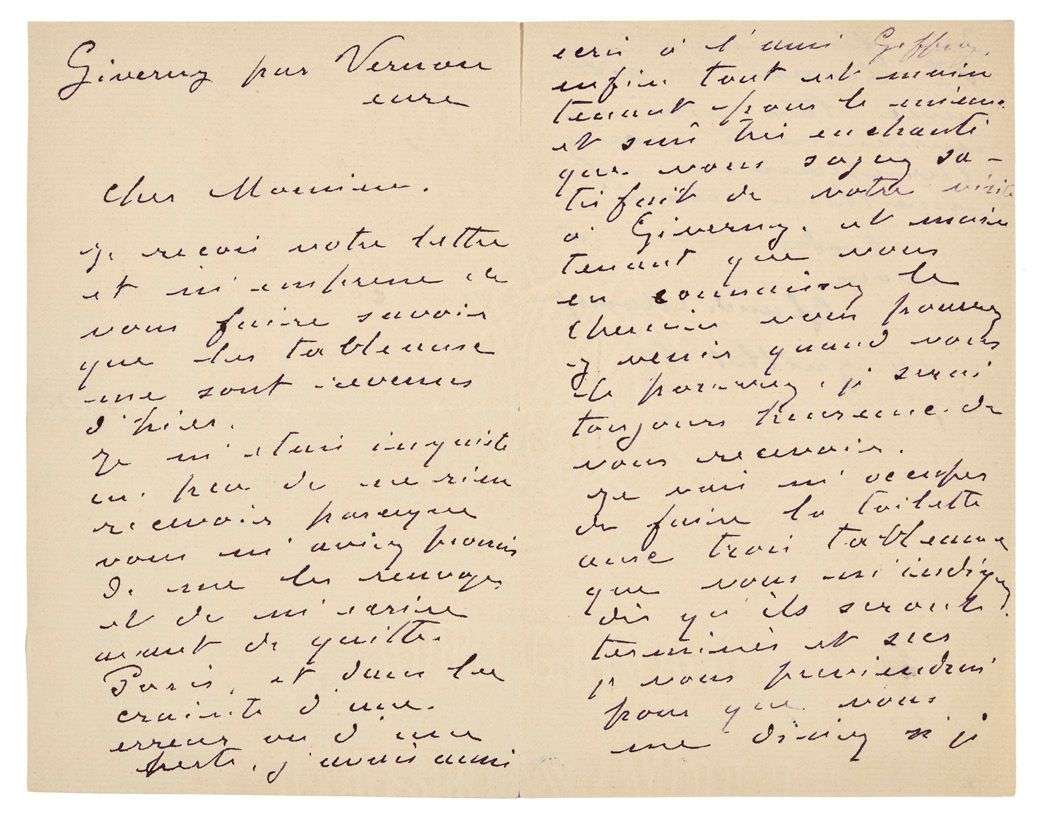 Giverny par Vernon
eure
cher Monsieur.
Je reçois votre lettre
et m'empresse de
vous faire savoir
que les tableaux
me sont revenus
d'hier.
Je m'étais inquiété
un peu de ne rien
recevoir parceque
vous m'aviez promis
de me les renvoyer
et de m'écrire
avant de quitter
Paris, et dans la
crainte d'une
erreur ou d'une
perte, j'avais aussi
écris à l'ami Geffroy.
enfin tout est main
tenant pour le mieux
et suis très enchanté
que vous soyez sa-
tisfait de votre visite
à Giverny. et main
tenant que vous
en connaissez le
chemin vous pourrez
y venir quand vous
le pourrez, je serai
toujours heureux de
vous recevoir.
Je vais m'occuper
de faire la toilette
aux trois tableaux
que vous m'indiquez
dès qu'ils seront
terminés et secs
je vous préviendrai
pour que vous
me disiez si je